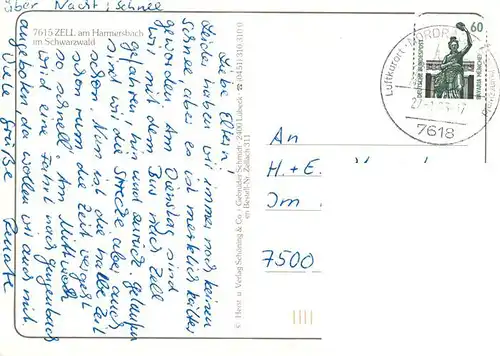 über Nacht; Schnee
7615 ZELL am Harmersbach
im Schwarzwald
Liebe Eltern,
Leider haben wir immer noch keinen
Schnee aber es ist merklich kälter
geworden. Am Dienstag sind
wir mit dem Bus nach Zell
gefahren, hin und zurück. gelaufen
sind wir die Strecke aber auch
schon. Nun ist die halbe Zeit
schon rum die Zeit vergeht
so schnell. Am Mittwoch
wird eine Fahrt nach gengenbach
angeboten da wollen wir auch mit.
Viele grüße Renate
© Herst. u. Verlag Schöning & Co · Gebrüder Schmidt · 2400 Lübeck · ☎ (0451) 310 310
Bestell-Nr. Zellach 311
60
DEUTSCHE BUNDESPOST
BAVARIA MÜNCHEN
Luftkurort NORDRA
7618
An
H.+E.
Im
7500